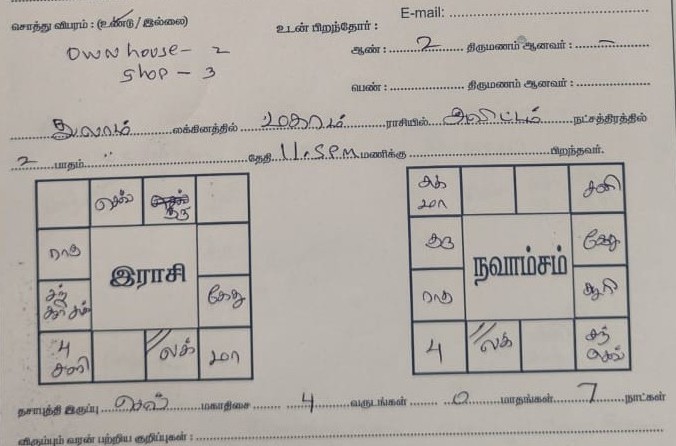 E-mail:
சொத்து விபரம் : (உண்டு / இல்லை) உடன் பிறந்தோர் :
own house - 2 ஆண் : 2 திருமணம் ஆனவர் : –
shop - 3
பெண் : திருமணம் ஆனவர் :
துலாம் லக்கினத்தில் மகரம் ராசியில் அவிட்டம் நட்சத்திரத்தில்
2 பாதம் தேதி 11.5 P.M மணிக்கு பிறந்தவர்.
செவ் குரு சுக் மா சனி
ராகு குரு கேது
இராசி நவாம்சம்
சந் கேது ராகு
4 சனி லக் மா 4 லக் சந் செவ்
தசாபுத்தி இருப்பு செவ் மகாதிசை 4 வருடங்கள் 0 மாதங்கள் 7 நாட்கள்
விரும்பும் வரன் பற்றிய குறிப்புகள் :